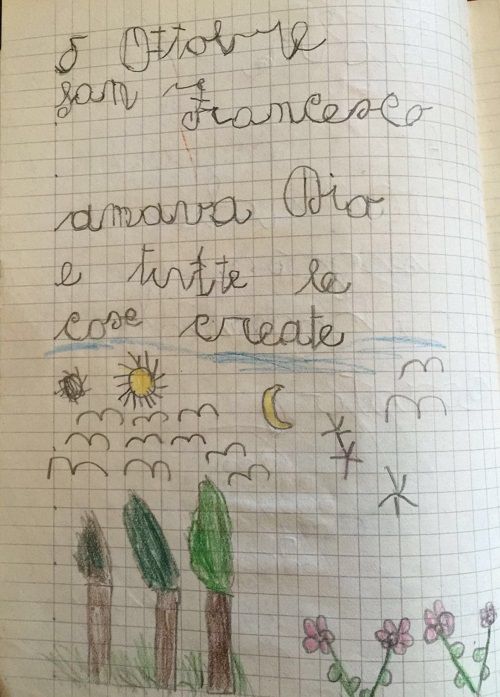 5 Ottobre
San Francesco
amava Dio
e tutte le
cose create